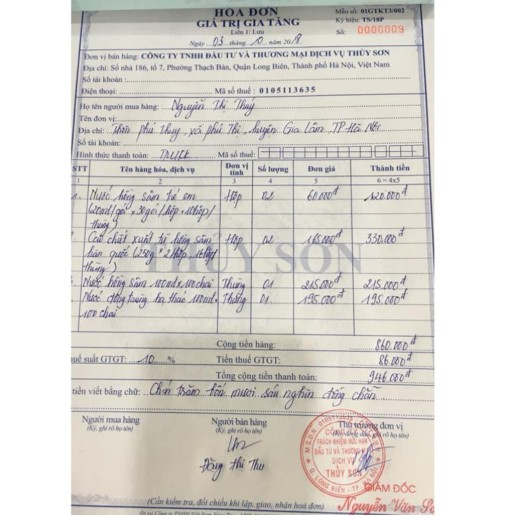 HÓA ĐƠN
GIÁ TRỊ GIA TĂNG
Liên 1: Lưu
Ngày 03 tháng 10 năm 2018
Mẫu số: 01GTKT3/002
Ký hiệu: TS/18P
Số: 0000009
Đơn vị bán hàng: CÔNG TY TNHH ĐẦU TƯ VÀ THƯƠNG MẠI DỊCH VỤ THỦY SƠN
Địa chỉ: Số nhà 186, tổ 7, Phường Thạch Bàn, Quận Long Biên, Thành phố Hà Nội, Việt Nam
Số tài khoản:
Điện thoại: Mã số thuế: 0105113635
Họ tên người mua hàng: Nguyễn Thị Thuý
Tên đơn vị:
Địa chỉ: Thôn phú thuỵ, xã phú thị, huyện Gia Lâm, TP-Hà Nội
Số tài khoản:
Hình thức thanh toán: TM/CK Mã số thuế:
STT Tên hàng hóa, dịch vụ Đơn vị tính Số lượng Đơn giá Thành tiền
1 2 3 4 5 6 = 4x5
1. Nước hồng sâm trẻ em Hộp 02 60.000đ 120.000đ
(20ml/gói * 30gói/hộp *
thùng)
Cao chiết xuất từ hồng sâm Hộp 02 165.000đ 330.000đ
hàn quốc (250g * 2
thùng)
Nước hồng sâm 100ml x 100chai Thùng 01 215.000đ 215.000đ
Nước đông trùng hạ thảo 100ml x Thùng 01 195.000đ 195.000đ
100 chai
THỦY SƠN
Cộng tiền hàng: 860.000đ
Thuế suất GTGT: 10 % Tiền thuế GTGT: 86.000đ
Tổng cộng tiền thanh toán: 946.000đ
tiền viết bằng chữ: Chín trăm bốn mươi sáu nghìn đồng chẵn.
Người mua hàng
(Ký, ghi rõ họ tên)
Người bán hàng
(Ký, ghi rõ họ tên)
Thủ trưởng đơn vị
Đặng Thị Thu
TRÁCH NHIỆM HỮU HẠN
ĐẦU TƯ VÀ THƯƠNG MẠI
DỊCH VỤ
THỦY SƠN
GIÁM ĐỐC
Nguyễn Văn
(Cần kiểm tra, đối chiếu khi lập, giao, nhận hoá đơn)